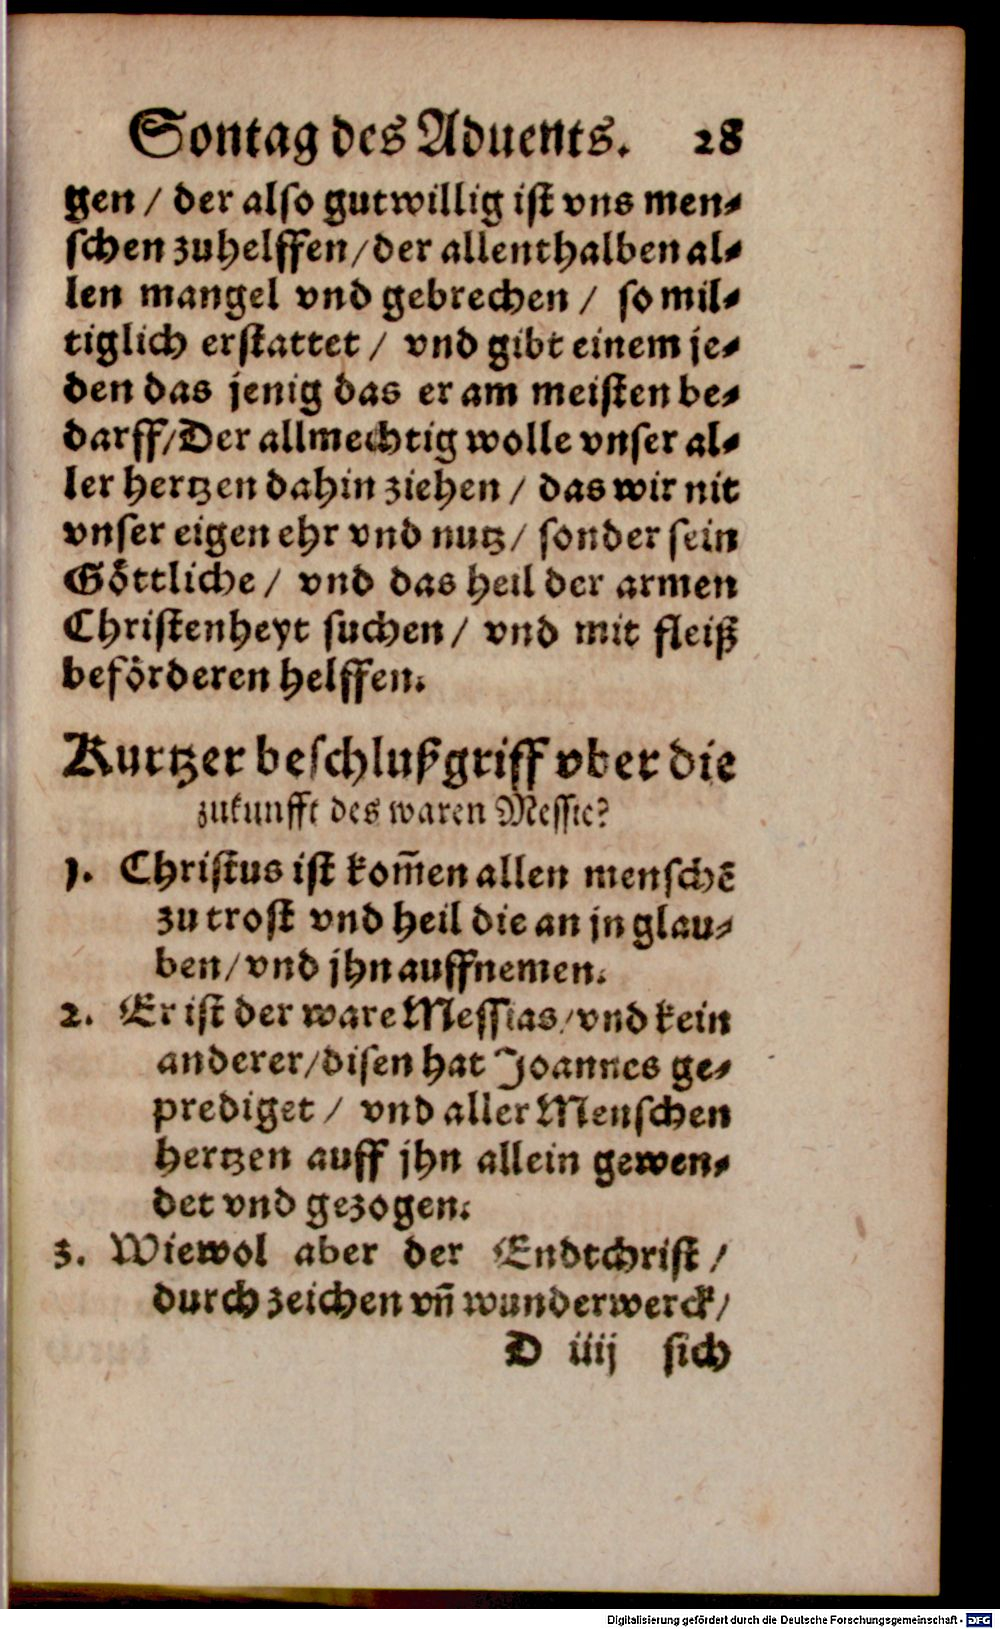 Sontag des Aduents. 28
gen / der also gutwillig ist vns men⸗
schen zuhelffen / der allenthalben al⸗
len mangel vnd gebrechen / so mil⸗
tiglich erstattet / vnd gibt einem je⸗
den das jenig das er am meisten be⸗
darff / Der allmechtig wolle vnser al⸗
ler hertzen dahin ziehen / das wir nit
vnser eigen ehr vnd nutz / sonder sein
Göttliche / vnd das heil der armen
Christenheyt suchen / vnd mit fleiß
beförderen helffen.
Kurtzer beschlußgriff vber die
zukunfft des waren Messie?
1. Christus ist kom̄en allen menschē
zu trost vnd heil die an jn glau⸗
ben / vnd jhn auffnemen.
2. Er ist der ware Messias / vnd kein
anderer / disen hat Joannes ge⸗
prediget / vnd aller Menschen
hertzen auff jhn allein gewen⸗
det vnd gezogen.
3. Wiewol aber der Endtchrist /
durch zeichen vn̄ wunderwerck /
D iiij sich
Digitalisierung gefördert durch die Deutsche Forschungsgemeinschaft - DFG